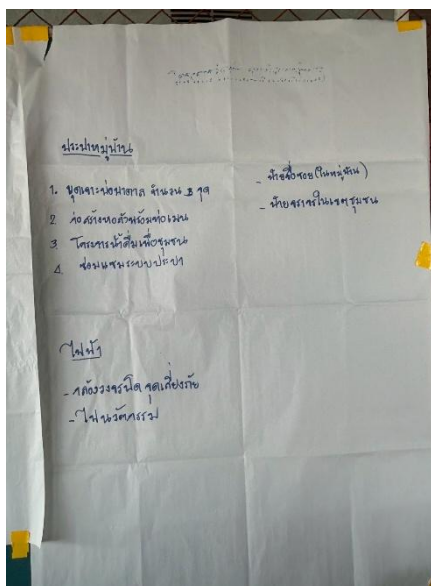 ประปาหมู่บ้าน
1. ขุดเจาะบ่อบาดาล จำนวน 3 จุด
2 ก่อสร้างหอตัวพร้อมท่อเมน
3 โครงการน้ำดื่มเพื่อชุมชน
4. ซ่อมแซมระบบประปา
- ป้ายชื่อซอย (ในหมู่บ้าน)
- ป้ายจราจรในเขตชุมชน
ไฟฟ้า
- กล้องวงจรปิด จุดเสี่ยงภัย
- ไฟนวัตกรรม